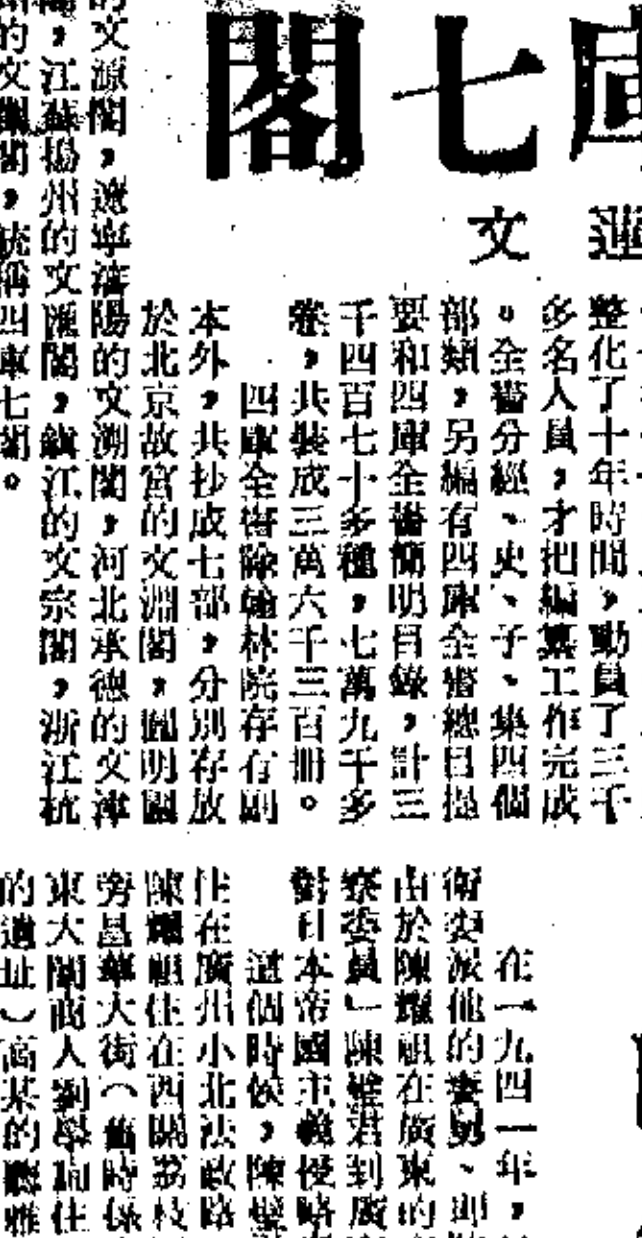 庫七閣
蓮文
整化了十年時間，動員了三千
多名人員，才把編纂工作完成
。全書分經、史、子、集四個
部類，另編有四庫全書總目提
要和四庫全書簡明目錄，計三
千四百七十多種，七萬九千多
卷，共裝成三萬六千三百册。
四庫全書除翰林院存有副
本外，共抄成七部，分別存放
於北京故宮的文淵閣，圓明園
的文源閣，遼寧瀋陽的文溯閣，河北承德的文津
閣，江蘇揚州的文匯閣，鎮江的文宗閣，浙江杭
州的文瀾閣，統稱四庫七閣。
在一九四一年，
衛委派他的妻舅、即
由於陳耀祖在廣東的
察委員」陳璧君到廣
對日本帝國主義侵略
這個時候，陳璧
住在廣州小北法政路
陳耀祖住在西關荔枝
旁昌華大街（舊時係
東大閣商人劉學詢住
的遺址）高某的聽雅